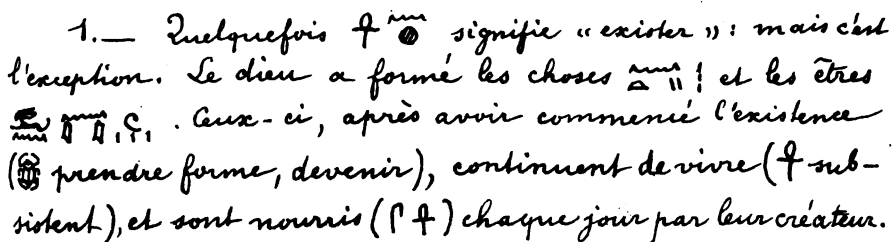 1. — Quelquefois 𓋹𓈖𓐍 signifie « exister » : mais c'est
l'exception. Le dieu a formé les choses et les êtres
. Ceux-ci, après avoir commencé l'existence
(𓆣 prendre forme, devenir), continuent de vivre (𓋹 sub-
sistent), et sont nourris (𓋴 𓋹) chaque jour par leur créateur.